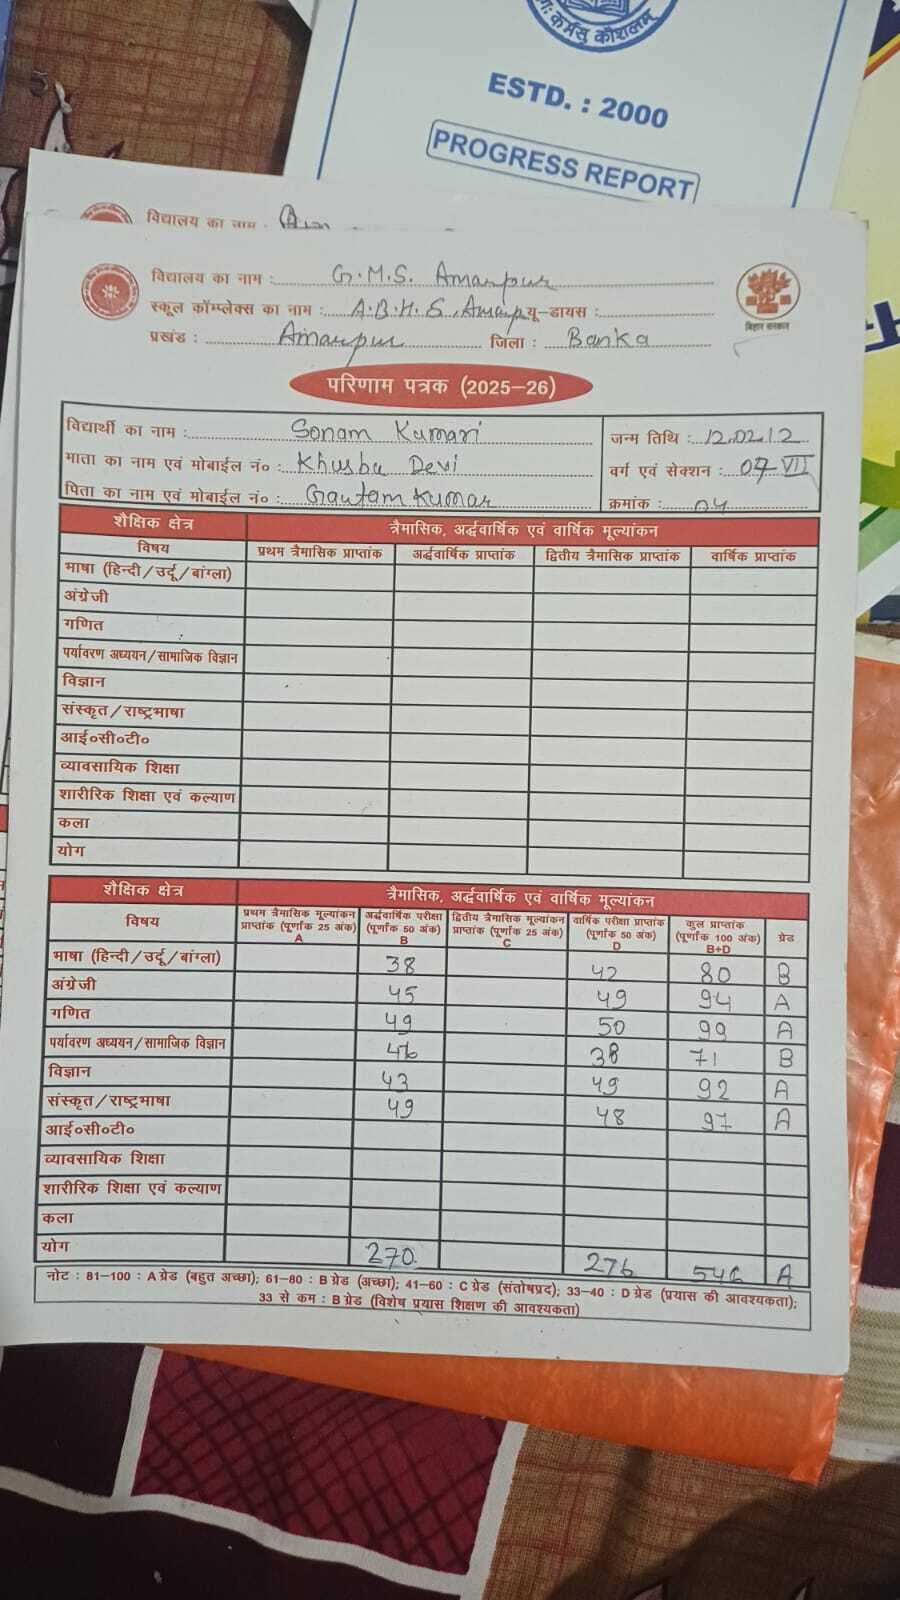 कर्मसु कौशलम्
ESTD. : 2000
PROGRESS REPORT
विद्यालय का नाम :
विद्यालय का नाम : G.M.S. Amarpur
स्कूल कॉम्प्लेक्स का नाम : A.B.H.S, Amarpur यू-डायस :
प्रखंड : Amarpur जिला : Banka
बिहार सरकार
परिणाम पत्रक (2025-26)
विद्यार्थी का नाम : Sonam Kumari जन्म तिथि : 12.02.12
माता का नाम एवं मोबाईल नं० : Khusbu Devi वर्ग एवं सेक्शन : 07 VII
पिता का नाम एवं मोबाईल नं० : Gautam Kumar क्रमांक : 04
शैक्षिक क्षेत्र त्रैमासिक, अर्द्धवार्षिक एवं वार्षिक मूल्यांकन
विषय प्रथम त्रैमासिक प्राप्तांक अर्द्धवार्षिक प्राप्तांक द्वितीय त्रैमासिक प्राप्तांक वार्षिक प्राप्तांक
भाषा (हिन्दी/उर्दू/बांग्ला)
अंग्रेजी
गणित
पर्यावरण अध्ययन/सामाजिक विज्ञान
विज्ञान
संस्कृत/राष्ट्रभाषा
आई०सी०टी०
व्यावसायिक शिक्षा
शारीरिक शिक्षा एवं कल्याण
कला
योग
शैक्षिक क्षेत्र त्रैमासिक, अर्द्धवार्षिक एवं वार्षिक मूल्यांकन
विषय प्रथम त्रैमासिक मूल्यांकन प्राप्तांक (पूर्णांक 25 अंक) A अर्द्धवार्षिक परीक्षा (पूर्णांक 50 अंक) B द्वितीय त्रैमासिक मूल्यांकन प्राप्तांक (पूर्णांक 25 अंक) C वार्षिक परीक्षा प्राप्तांक (पूर्णांक 50 अंक) D कुल प्राप्तांक (पूर्णांक 100 अंक) B+D ग्रेड
भाषा (हिन्दी/उर्दू/बांग्ला) 38 42 80 B
अंग्रेजी 45 49 94 A
गणित 49 50 99 A
पर्यावरण अध्ययन/सामाजिक विज्ञान 38 71 B
विज्ञान 43 49 92 A
संस्कृत/राष्ट्रभाषा 49 48 97 A
आई०सी०टी०
व्यावसायिक शिक्षा
शारीरिक शिक्षा एवं कल्याण
कला
योग 270 276 546 A
नोट : 81-100 : A ग्रेड (बहुत अच्छा); 61-80 : B ग्रेड (अच्छा); 41-60 : C ग्रेड (संतोषप्रद); 33-40 : D ग्रेड (प्रयास की आवश्यकता);
33 से कम : B ग्रेड (विशेष प्रयास शिक्षण की आवश्यकता)